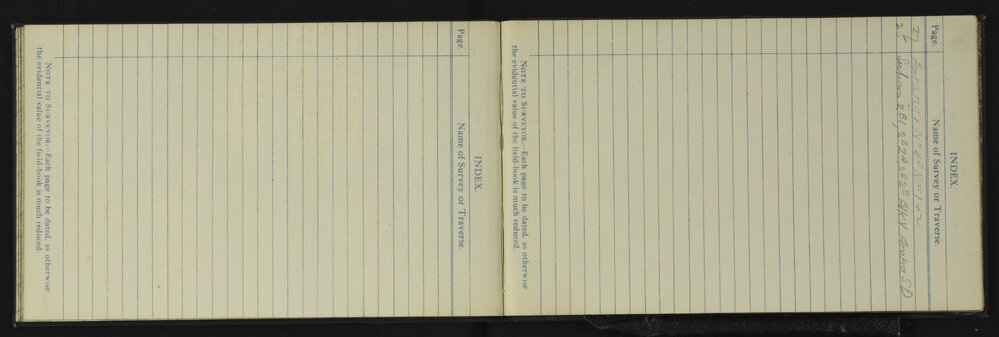 INDEX.
Page. Name of Survey or Traverse.
27
25 Sections 281, 282 & 282B Blk V Aroha SD
NOTE TO SURVEYOR.—Each page to be dated, as otherwise
the evidential value of the field-book is much reduced.
INDEX.
Page. Name of Survey or Traverse.
NOTE TO SURVEYOR.—Each page to be dated, as otherwise
the evidential value of the field-book is much reduced.